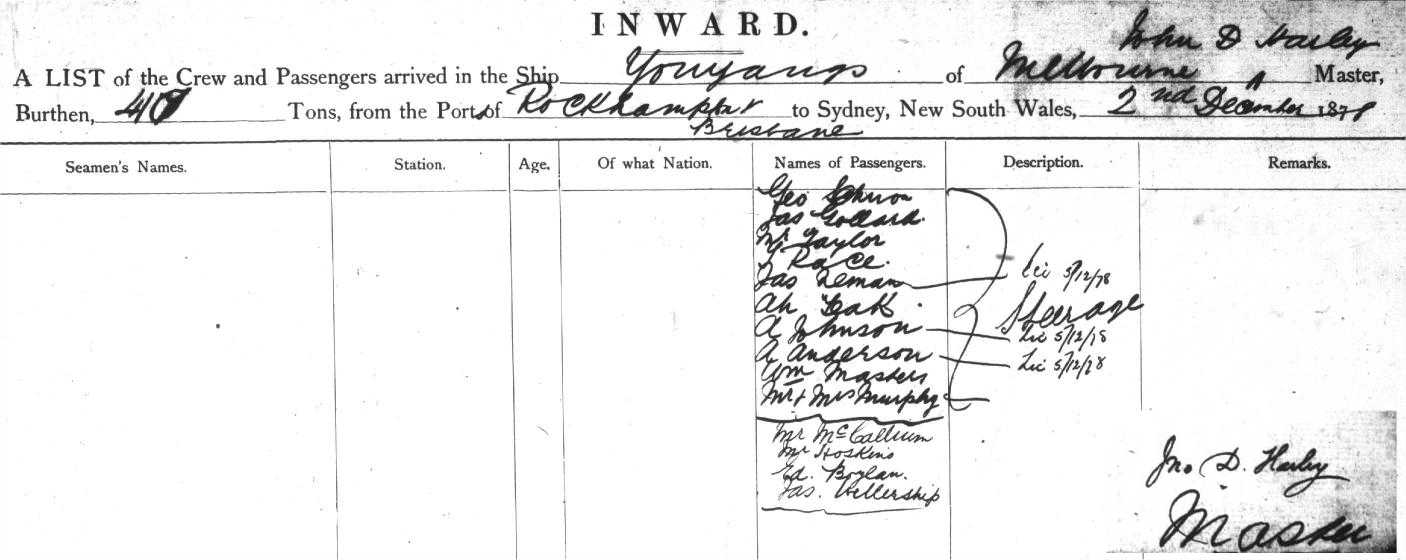 INWARD.
John D Harley
A LIST of the Crew and Passengers arrived in the Ship Youyangs of Melbourne Master,
Burthen, Tons, from the Port of Rockhampton to Sydney, New South Wales, 2nd December 1878
Brisbane
Seamen's Names. Station. Age. Of what Nation. Names of Passengers. Description. Remarks.
Geo
Jas Gollard.
Mr Taylor
Race.
Jas Leman Lic 5/12/78
Ah
Steerage
A Johnson Lic 5/12/78
A Anderson Lic 5/12/78
Wm Masters
Mr & Mrs Murphy
Mr McCallium
Mr Hoskins
Ed. Boylan.
Jas.
Jno D. Harley
Master